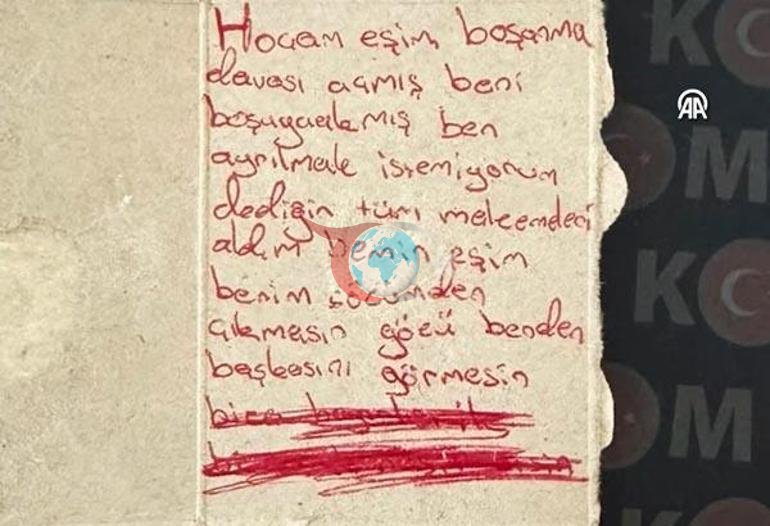 Hocam eşim boşanma
davası açmış beni
boşuyacakmış ben
ayrılmak istemiyorum
dediğin tüm malzemeleri
aldım benim eşim
benim sözümden
çıkmasın gözü benden
başkasını görmesin
AA
KO
OM
KO
OM
KO